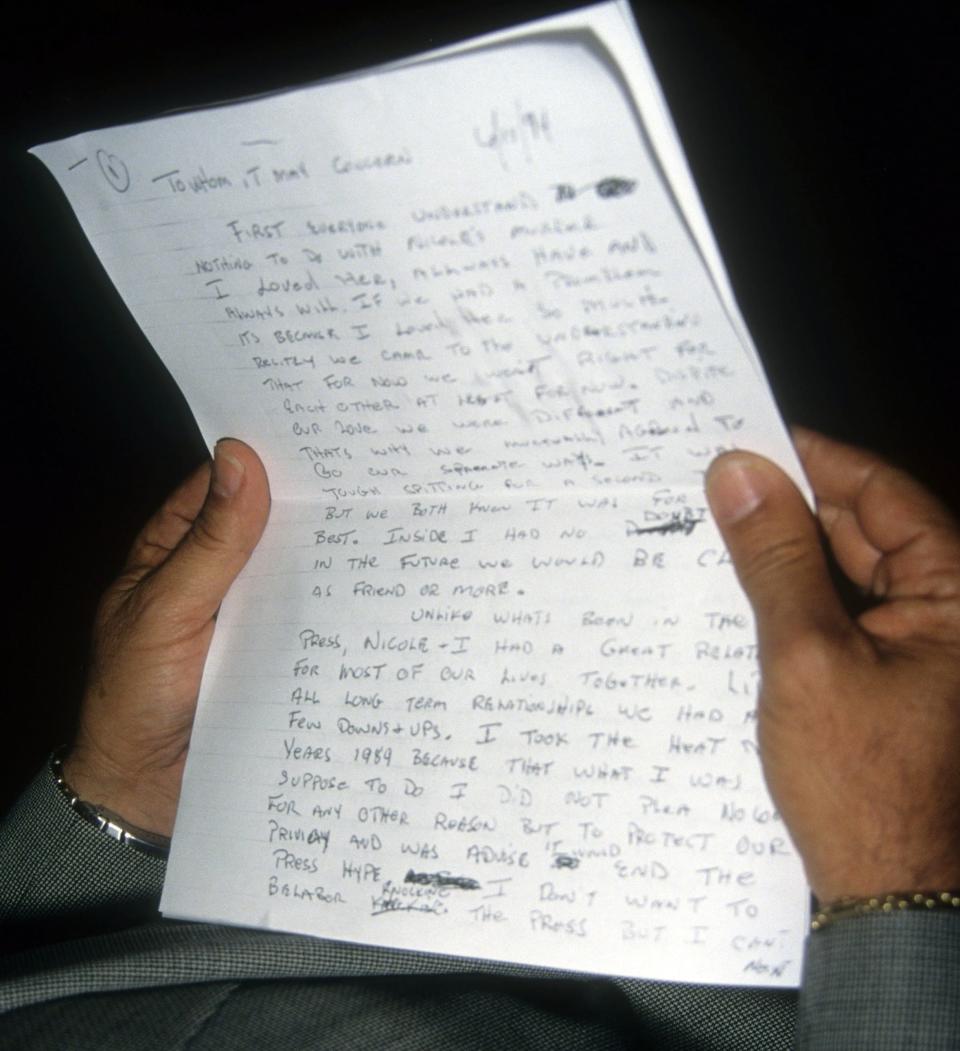 6/15/94
TO WHOM IT MAY CONCERN
FIRST EVERYONE UNDERSTAND
NOTHING TO DO WITH NICOLE'S MURDER
I LOVED HER, ALLWAYS HAVE AND
ALWAYS WILL. IF WE HAD A PROBLEM
ITS BECAUSE I LOVED HER SO MUCH.
RECITLY WE CAME TO THE UNDERSTANDING
THAT FOR NOW WE WEREN'T RIGHT FOR
EACH OTHER AT LEAST FOR NOW. DISPITE
OUR LOVE WE WERE DIFFERENT AND
THATS WHY WE MUTUALLY AGREED TO
GO OUR SEPERATE WAYS. IT WAS
TOUGH SPITTING FOR A SECOND
BUT WE BOTH KNEW IT WAS FOR
BEST. INSIDE I HAD NO DOUBT
IN THE FUTURE WE WOULD BE CL
AS FRIEND OR MORE.
UNLIKE WHATS BEEN IN THE
PRESS, NICOLE + I HAD A GREAT RELAT
FOR MOST OF OUR LIVES TOGETHER. LI
ALL LONG TERM RELATIONSHIPS WE HAD A
FEW DOWNS + UPS. I TOOK THE HEAT N
YEARS 1989 BECAUSE THAT WHAT I WAS
SUPPOSE TO DO I DID NOT PLEA NO CO
FOR ANY OTHER REASON BUT TO PROTECT OUR
PRIVICY AND WAS ADVISE IT WOULD END THE
PRESS HYPE I DON'T WANT TO
BELABOR KNOCKING THE PRESS BUT I CAN'T